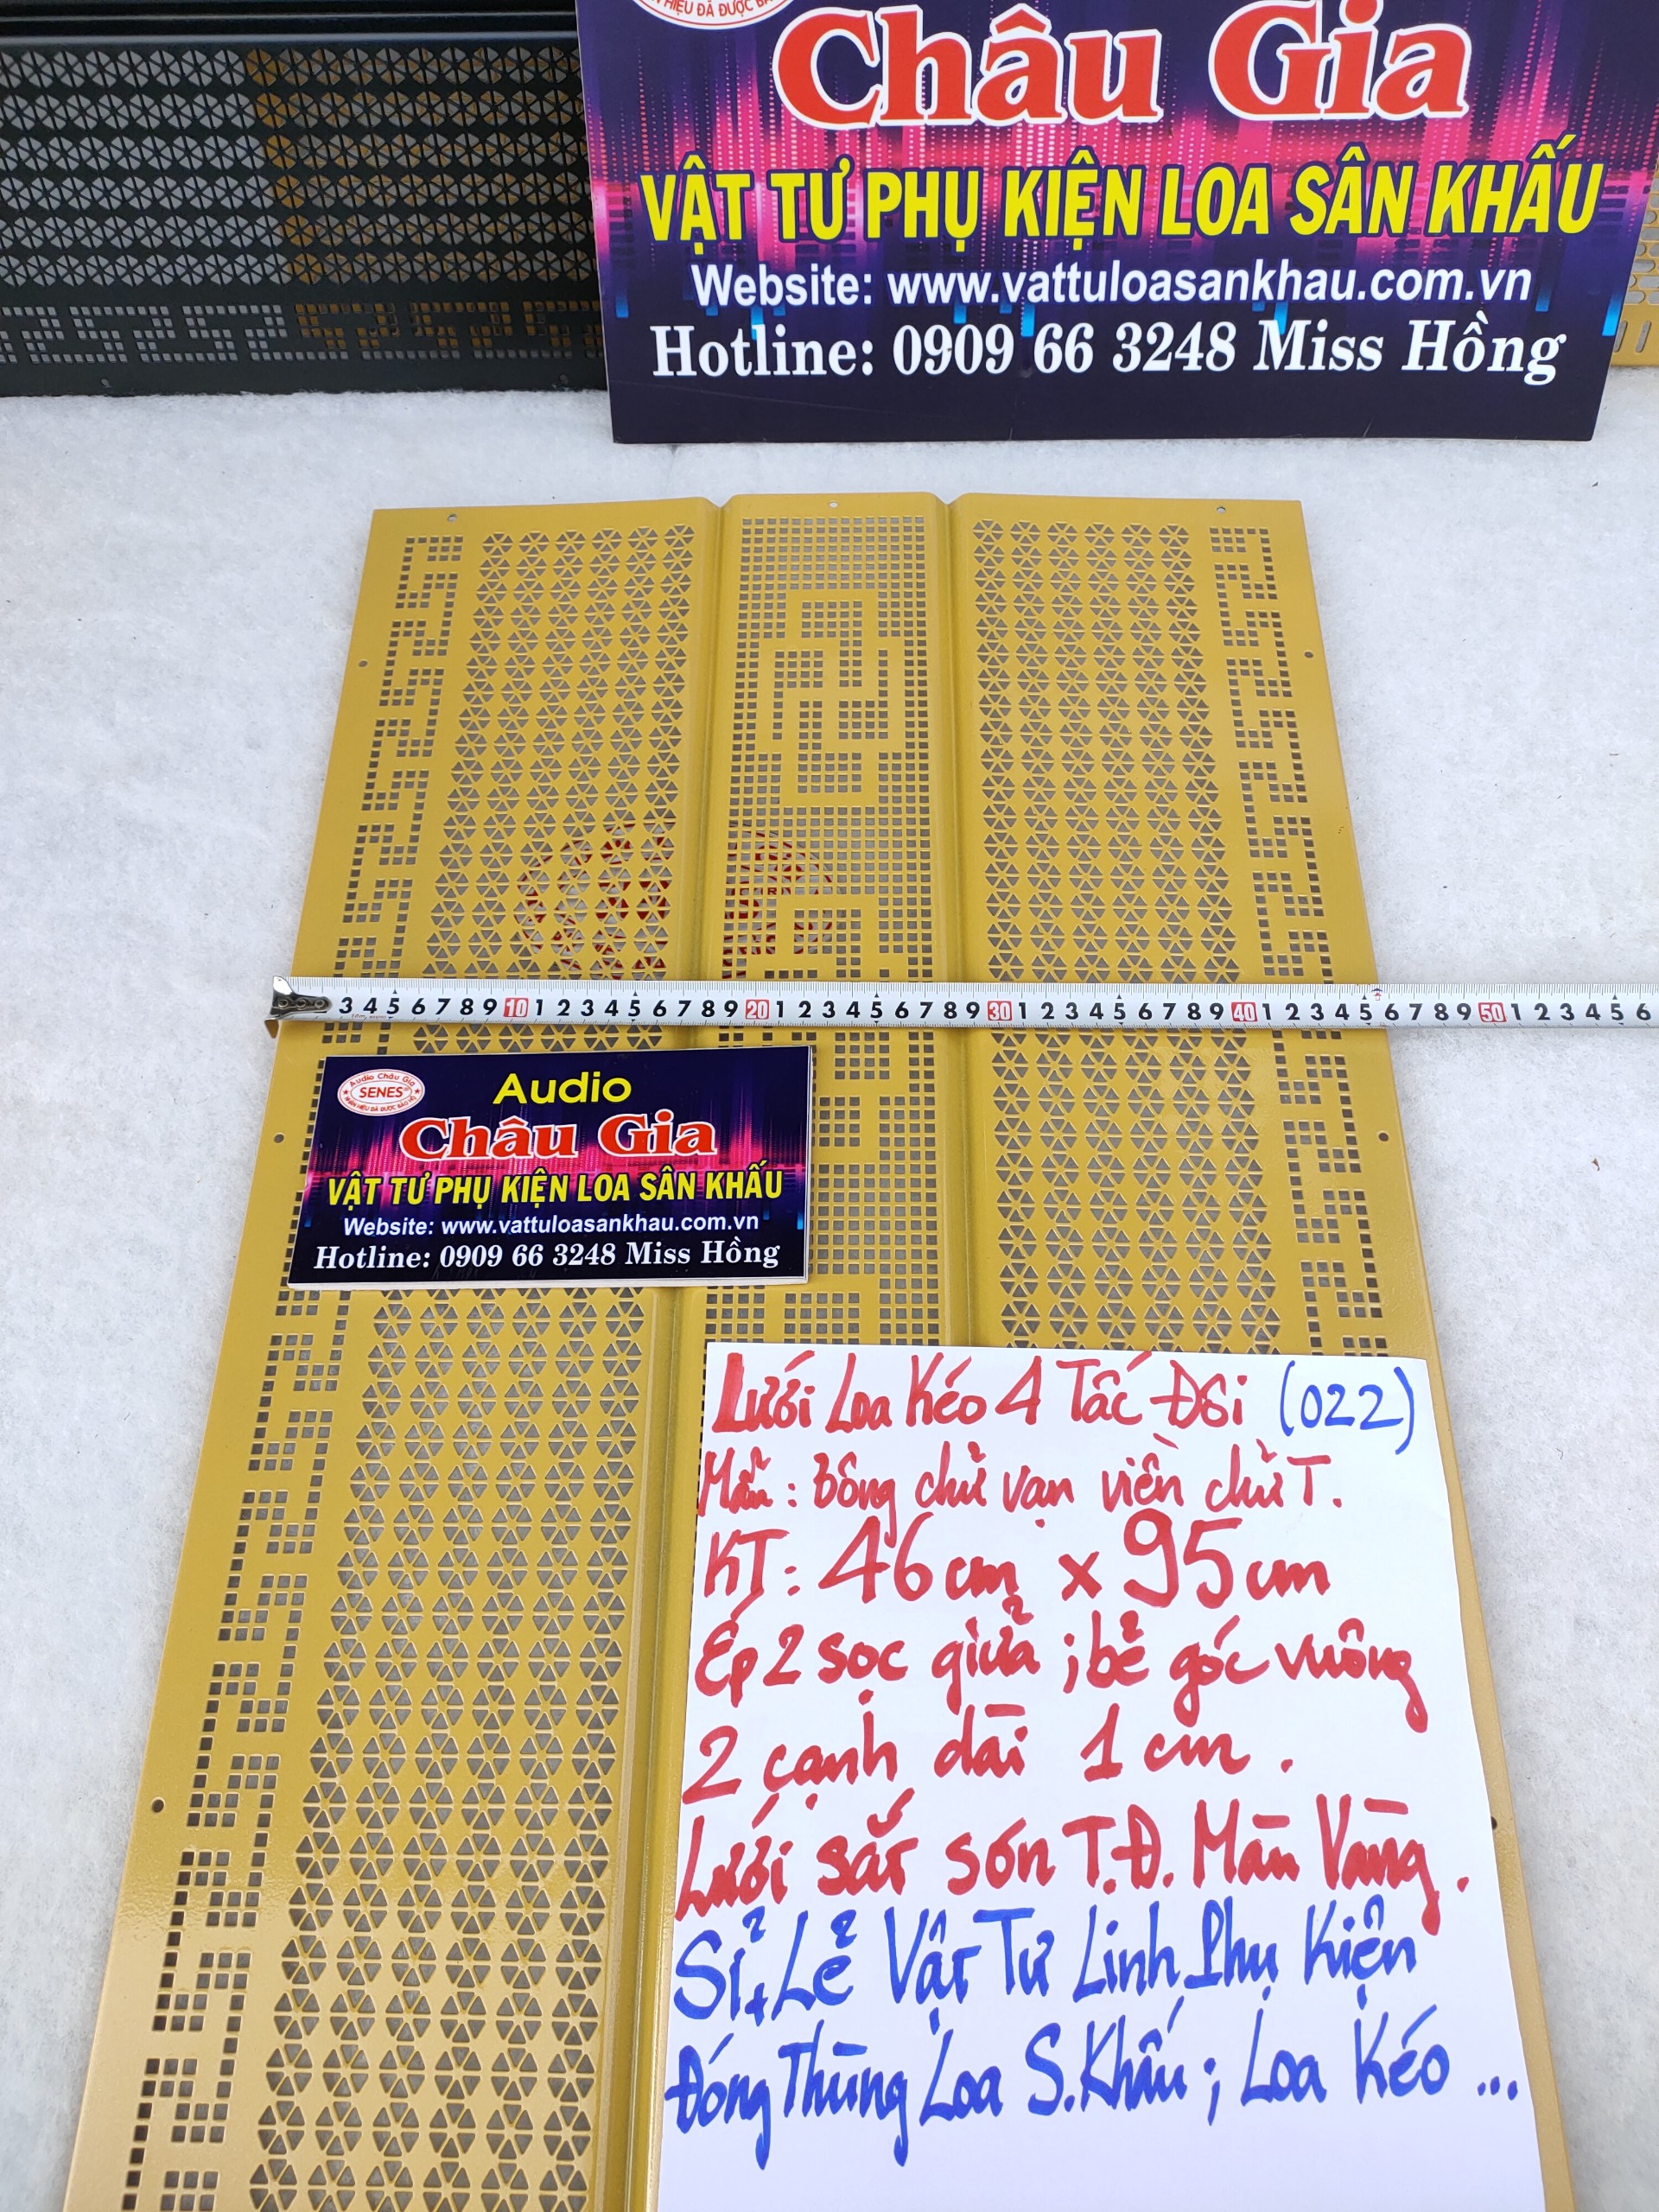 NHÃN HIỆU ĐÃ ĐƯỢC BẢO
Châu Gia
VẬT TƯ PHỤ KIỆN LOA SÂN KHẤU
Website: www.vattuloasankhau.com.vn
Hotline: 0909 66 3248 Miss Hồng
3 4 5 6 7 8 9 10 1 2 3 4 5 6 7 8 9 20 1 2 3 4 5 6 7 8 9 30 1 2 3 4 5 6 7 8 9 40 1 2 3 4 5 6 7 8 9 50 1 2 3 4 5 6
Audio Châu Gia
SENES®
NHÃN HIỆU ĐÃ ĐƯỢC BẢO HỘ
Audio
Châu Gia
VẬT TƯ PHỤ KIỆN LOA SÂN KHẤU
Website: www.vattuloasankhau.com.vn
Hotline: 0909 66 3248 Miss Hồng
Lưới Loa Kéo 4 Tấc Đôi (022)
Mẫu: Bông chữ vạn viền chữ T.
KT: 46cm x 95cm
Ép 2 sọc giữa; bẻ góc vuông
2 cạnh dài 1 cm.
Lưới sắt sơn T.Đ. Màu Vàng.
Sỉ + Lẻ Vật Tư Linh Phụ Kiện
Đóng Thùng Loa S.Khấu; Loa Kéo ...